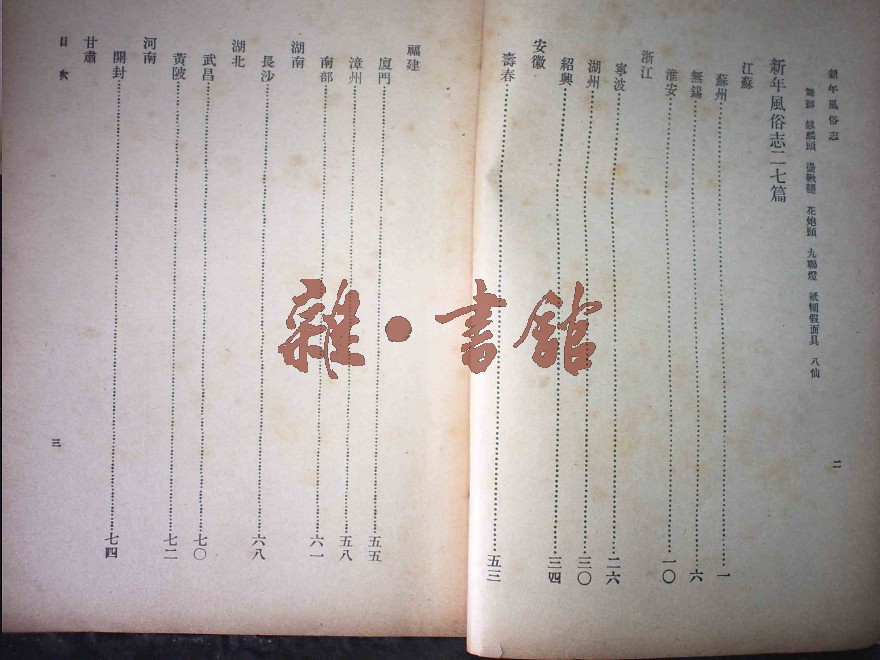 新年風俗志
舞獅 麒麟頭 盪鞦韆 花炮頭 九聯燈 紙糊假面具 八仙
二
新年風俗志二七篇
江蘇
蘇州……一
無錫……六
淮安……一〇
浙江
寧波……二六
湖州……三〇
紹興……三四
安徽
壽春……五三
福建
廈門……五五
漳州……五八
南部……六一
湖南
長沙……六八
湖北
武昌……七〇
黃陂……七二
河南
開封……七四
甘肅
目次
三
雜·書館